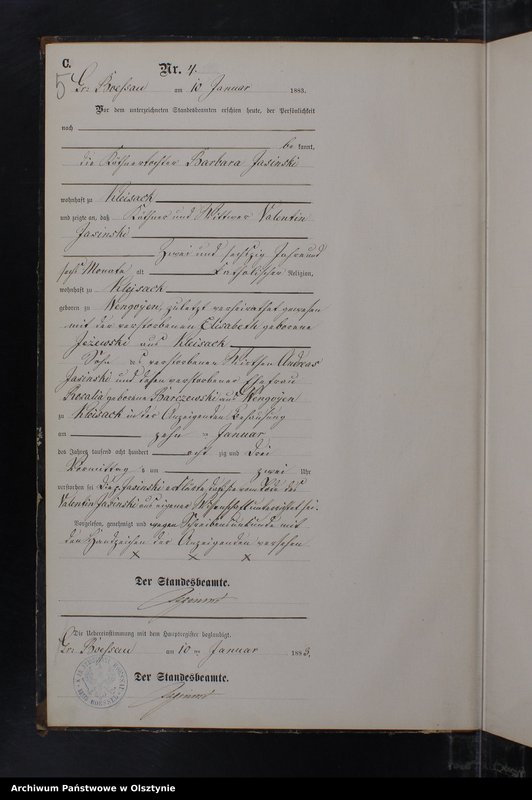 C.
5
Nr. 4.
Gr. Boessau am 10 Januar 1883.
Vor dem unterzeichneten Standesbeamten erschien heute, der Persönlichkeit
nach
be kannt,
die Käthnertochter Barbara Jasinski
wohnhaft zu Kleisack
und zeigte an, daß Käthner und Wittwer Valentin
Jasinski
Zwei und sechszig Jahre und
sechs Monate alt Katholischer Religion,
wohnhaft zu Kleisack
geboren zu Wengoyen, zuletzt verheirathet gewesen
mit der verstorbenen Elisabeth geborene
Jezewski aus Kleisack
Sohn des verstorbenen Wirthen Andreas
Jasinski und dessen verstorbener Ehefrau
Rosalia geborenen Barczewski aus Wengoyen
zu Kleisack in der Anzeigenden Behausung
am zehn ten Januar
des Jahres tausend acht hundert acht zig und drei
Vormittag s um zwei Uhr
verstorben sei Die Jasinski erklärte daß sie vom Tode des
Valentin Jasinski aus eigener Wissenschaft unterrichtet sei.
Vorgelesen, genehmigt und wegen Schreibensunkunde mit
den Handzeichen der Anzeigenden versehen
x x x
Der Standesbeamte.
Die Uebereinstimmung mit dem Hauptregister beglaubigt.
Gr. Boessau am 10 ten Januar 1883.
Der Standesbeamte.
Archiwum Państwowe w Olsztynie